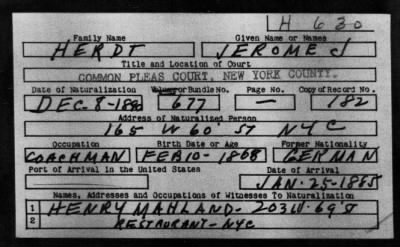 H 630
Family Name Given Name or Names
HERDT JEROME J
Title and Location of Court
COMMON PLEAS COURT, NEW YORK COUNTY.
Date of Naturalization Volume or Bundle No. Page No. Copy of Record No.
DEC-8-1890 677 — 182
Address of Naturalized Person
165 W 60 ST NYC
Occupation Birth Date or Age Former Nationality
COACHMAN FEB 10-1868 GERMAN
Port of Arrival in the United States Date of Arrival
JAN-25-1885
Names, Addresses and Occupations of Witnesses To Naturalization
1 HENRY MAHLAND-203W-69 ST
2 RESTAURANT-NYC